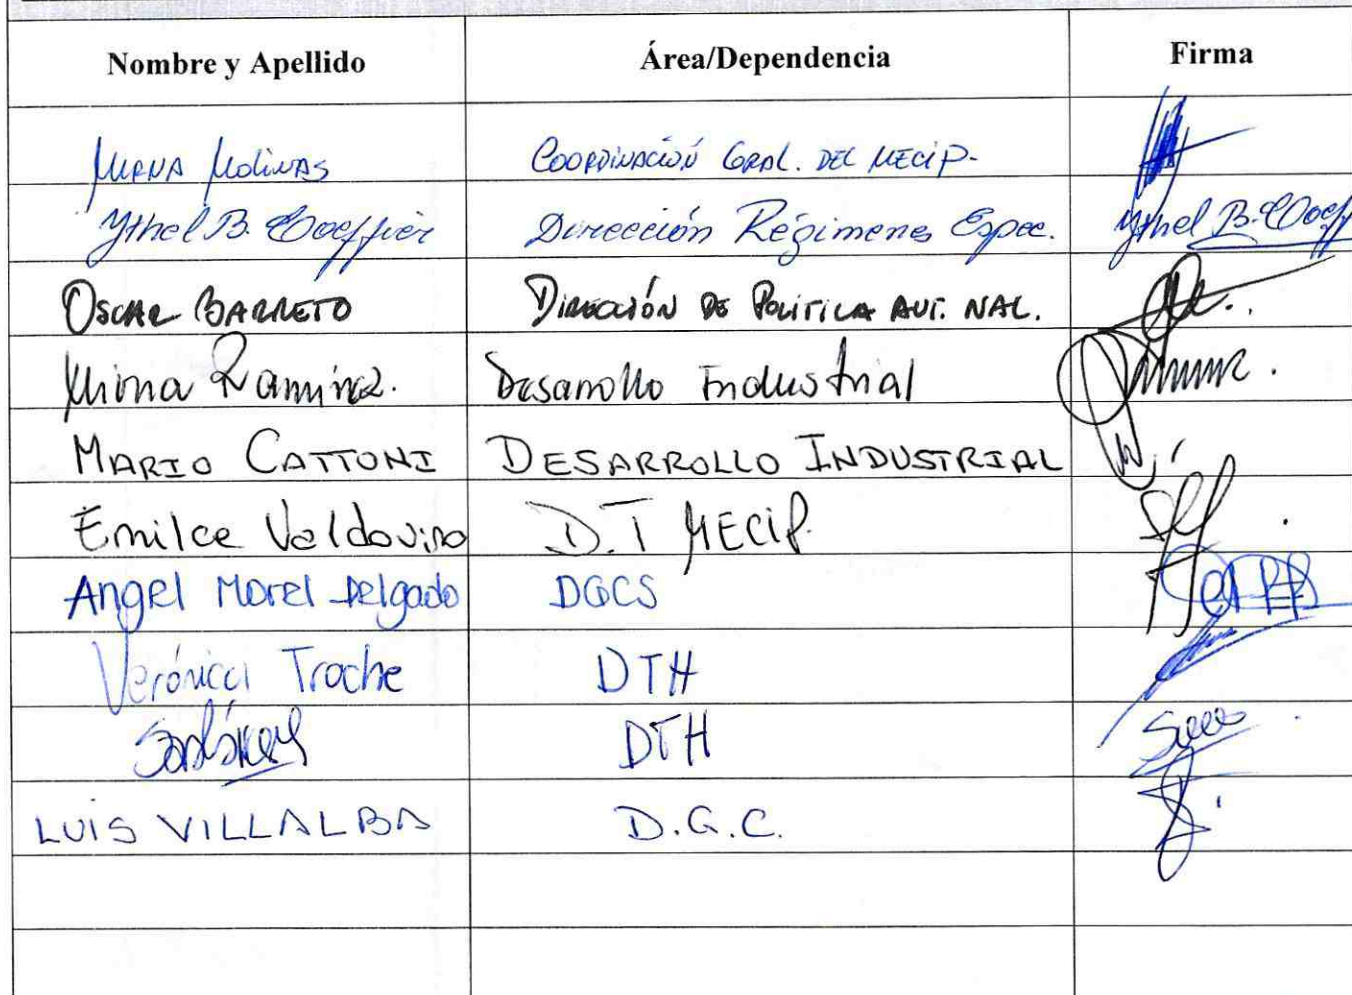 Nombre y Apellido Área/Dependencia Firma
Mirna Molinas Coordinación Gral. del MECIP-
Ythel B. Coeffier Dirección Régimenes Espec. Ythel B. Coeff
Oscar Barreto Dirección de Politica Aut. Nal.
Ramírez. Desarrollo Industrial
MARIO CATTONI DESARROLLO INDUSTRIAL
Emilce Valdovino D.T MECIP.
Angel Morel Delgado DGCS
Verónica Troche DTH
DTH
LUIS VILLALBA D.G.C.